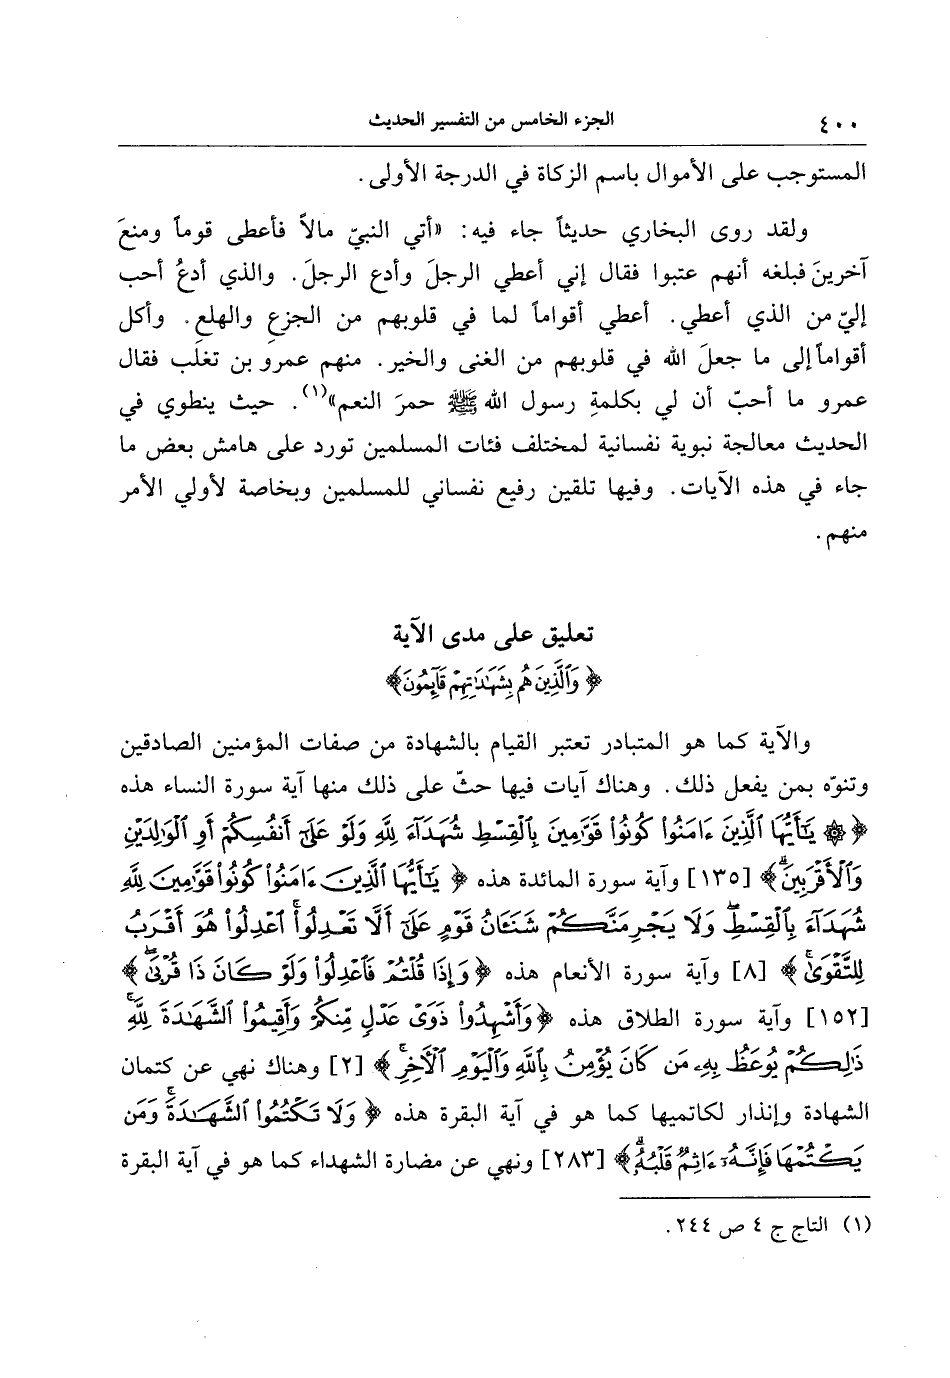 ٤٠٠ الجزء الخامس من التفسير الحديث
المستوجب على الأموال باسم الزكاة في الدرجة الأولى.
ولقد روى البخاري حديثاً جاء فيه: «أتي النبيّ مالاً فأعطى قوماً ومنعَ
آخرينَ فبلغه أنهم عتبوا فقال إني أعطي الرجلَ وأدع الرجلَ. والذي أدعُ أحب
إليّ من الذي أعطي. أعطي أقواماً لما في قلوبهم من الجزعِ والهلعِ. وأكل
أقواماً إلى ما جعلَ الله في قلوبهم من الغنى والخير. منهم عمرو بن تغلَب فقال
عمرو ما أحبّ أن لي بكلمةِ رسول الله ﷺ حمرَ النعم»(١). حيث ينطوي في
الحديث معالجة نبوية نفسانية لمختلف فئات المسلمين تورد على هامش بعض ما
جاء في هذه الآيات. وفيها تلقين رفيع نفساني للمسلمين وبخاصة لأولي الأمر
منهم.
تعليق على مدى الآية
﴿ وَٱلَّذِينَ هُم بِشَهَٰدَٰتِهِمْ قَآئِمُونَ﴾
والآية كما هو المتبادر تعتبر القيام بالشهادة من صفات المؤمنين الصادقين
وتنوّه بمن يفعل ذلك. وهناك آيات فيها حثّ على ذلك منها آية سورة النساء هذه
﴿ ۞ يَٰٓأَيُّهَا ٱلَّذِينَ ءَامَنُوا۟ كُونُوا۟ قَوَّٰمِينَ بِٱلْقِسْطِ شُهَدَآءَ لِلَّهِ وَلَوْ عَلَىٰٓ أَنفُسِكُمْ أَوِ ٱلْوَٰلِدَيْنِ
وَٱلْأَقْرَبِينَۚ﴾ [١٣٥] وآية سورة المائدة هذه ﴿ يَٰٓأَيُّهَا ٱلَّذِينَ ءَامَنُوا۟ كُونُوا۟ قَوَّٰمِينَ لِلَّهِ
شُهَدَآءَ بِٱلْقِسْطِۖ وَلَا يَجْرِمَنَّكُمْ شَنَـَٔانُ قَوْمٍ عَلَىٰٓ أَلَّا تَعْدِلُوا۟ۚ ٱعْدِلُوا۟ هُوَ أَقْرَبُ
لِلتَّقْوَىٰۖ ﴾ [٨] وآية سورة الأنعام هذه ﴿ وَإِذَا قُلْتُمْ فَٱعْدِلُوا۟ وَلَوْ كَانَ ذَا قُرْبَىٰۖ ﴾
[١٥٢] وآية سورة الطلاق هذه ﴿وَأَشْهِدُوا۟ ذَوَىْ عَدْلٍ مِّنكُمْ وَأَقِيمُوا۟ ٱلشَّهَٰدَةَ لِلَّهِۚ
ذَٰلِكُمْ يُوعَظُ بِهِۦ مَن كَانَ يُؤْمِنُ بِٱللَّهِ وَٱلْيَوْمِ ٱلْـَٔاخِرِۚ ﴾ [٢] وهناك نهي عن كتمان
الشهادة وإنذار لكاتميها كما هو في آية البقرة هذه ﴿ وَلَا تَكْتُمُوا۟ ٱلشَّهَٰدَةَۚ وَمَن
يَكْتُمْهَا فَإِنَّهُۥٓ ءَاثِمٌ قَلْبُهُۥۗ﴾ [٢٨٣] ونهي عن مضارة الشهداء كما هو في آية البقرة
(١) التاج ج ٤ ص ٢٤٤.